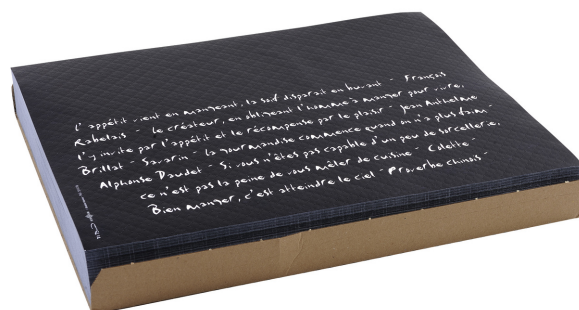 L'appétit vient en mangeant, la soif disparait en buvant - François
Rabelais - le créateur, en obligeant l'homme à manger pour vivre,
l'y invite par l'appétit et le récompense par le plaisir - Jean Anthelme
Brillat - Savarin - la gourmandise commence quand on n'a plus faim -
Alphonse Daudet - Si vous n'êtes pas capable d'un peu de sorcellerie,
ce n'est pas la peine de vous mêler de cuisine - Colette -
Bien manger, c'est atteindre le ciel - Proverbe chinois -